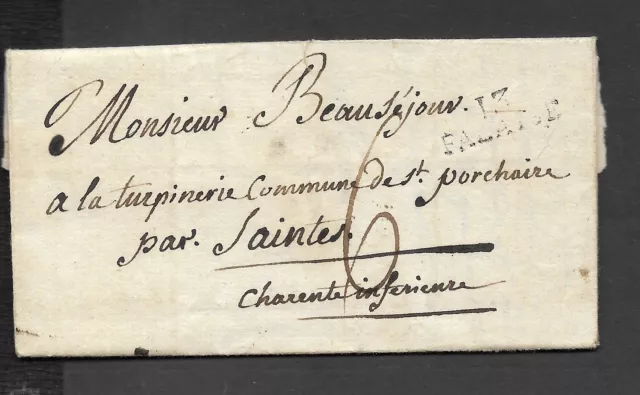 Monsieur Beauséjour.
13
FALAISE
a la turpinerie Commune de st. porchaire
par. Saintes.
6
Charente inferieure